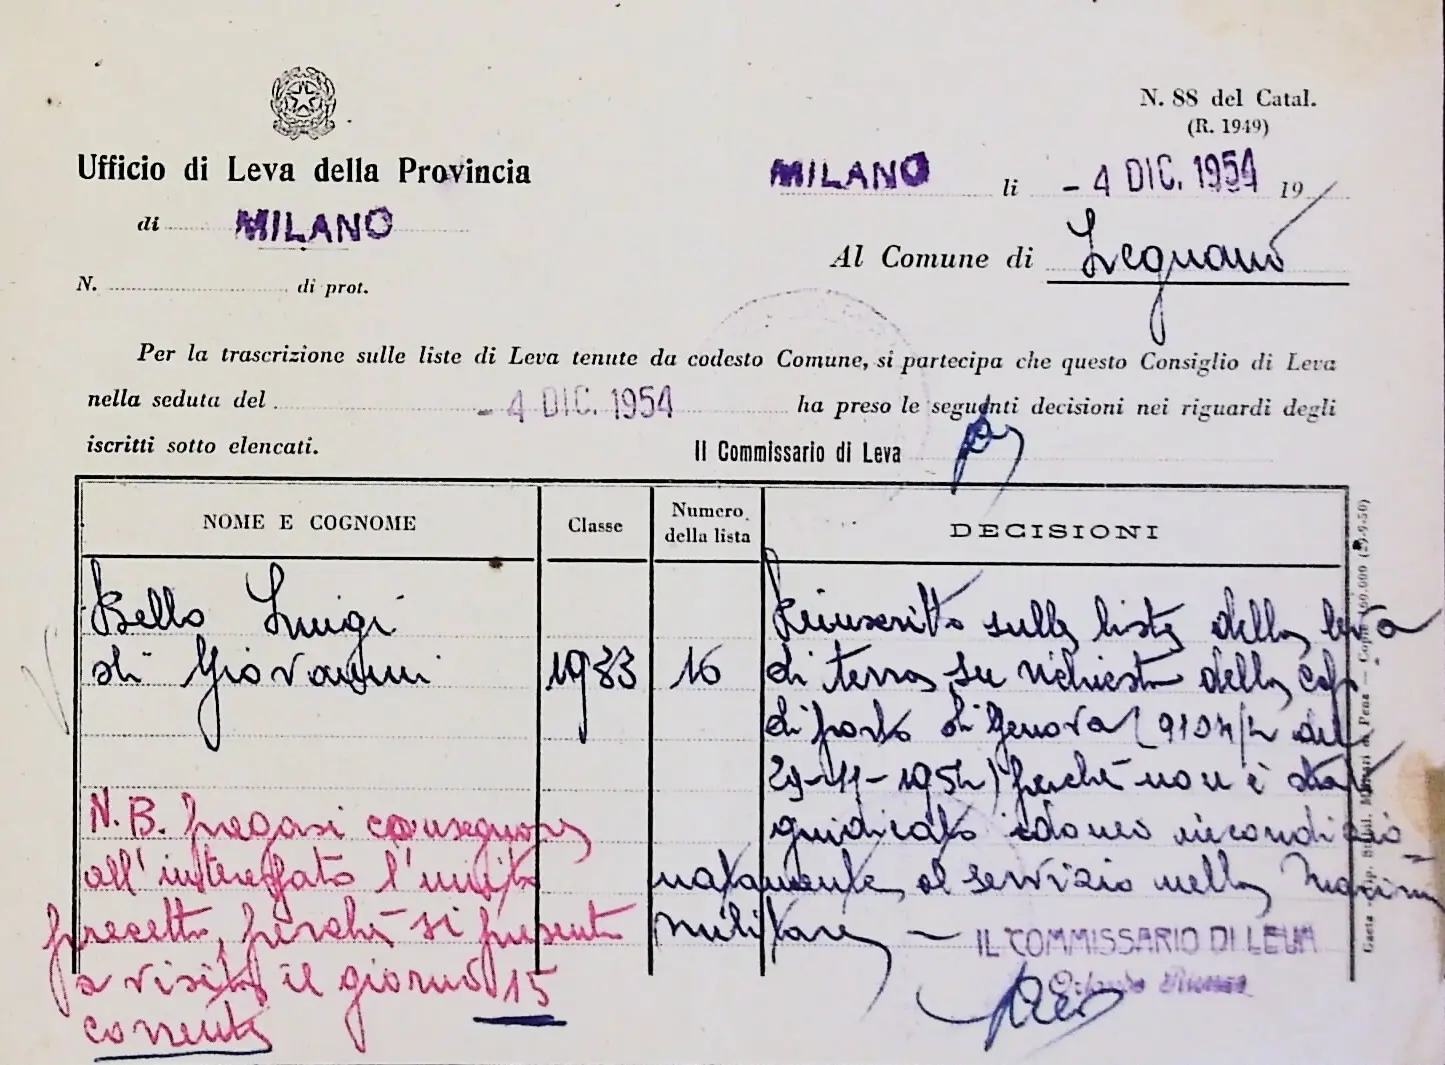 N. 88 del Catal.
(R. 1949)
Ufficio di Leva della Provincia
di MILANO
N. di prot.
MILANO li - 4 DIC. 1954 19
Al Comune di Legnano
Per la trascrizione sulle liste di Leva tenute da codesto Comune, si partecipa che questo Consiglio di Leva
nella seduta del - 4 DIC. 1954 ha preso le seguenti decisioni nei riguardi degli
iscritti sotto elencati.
Il Commissario di Leva
NOME E COGNOME Classe Numero della lista DECISIONI
Bello Luigi
di Giovanni 1933 16
Reinscritto sulle liste della leva
di terra su richiesta della Cap.
di porto di Genova ( del
29-11-1954) perché non è stato
giudicato idoneo incondizio
natamente al servizio nella Marina
militare
N.B. Pregasi consegnare
all'interessato l'unito
precetto, perché si presenti
a visita il giorno 15
corrente
IL COMMISSARIO DI LEVA